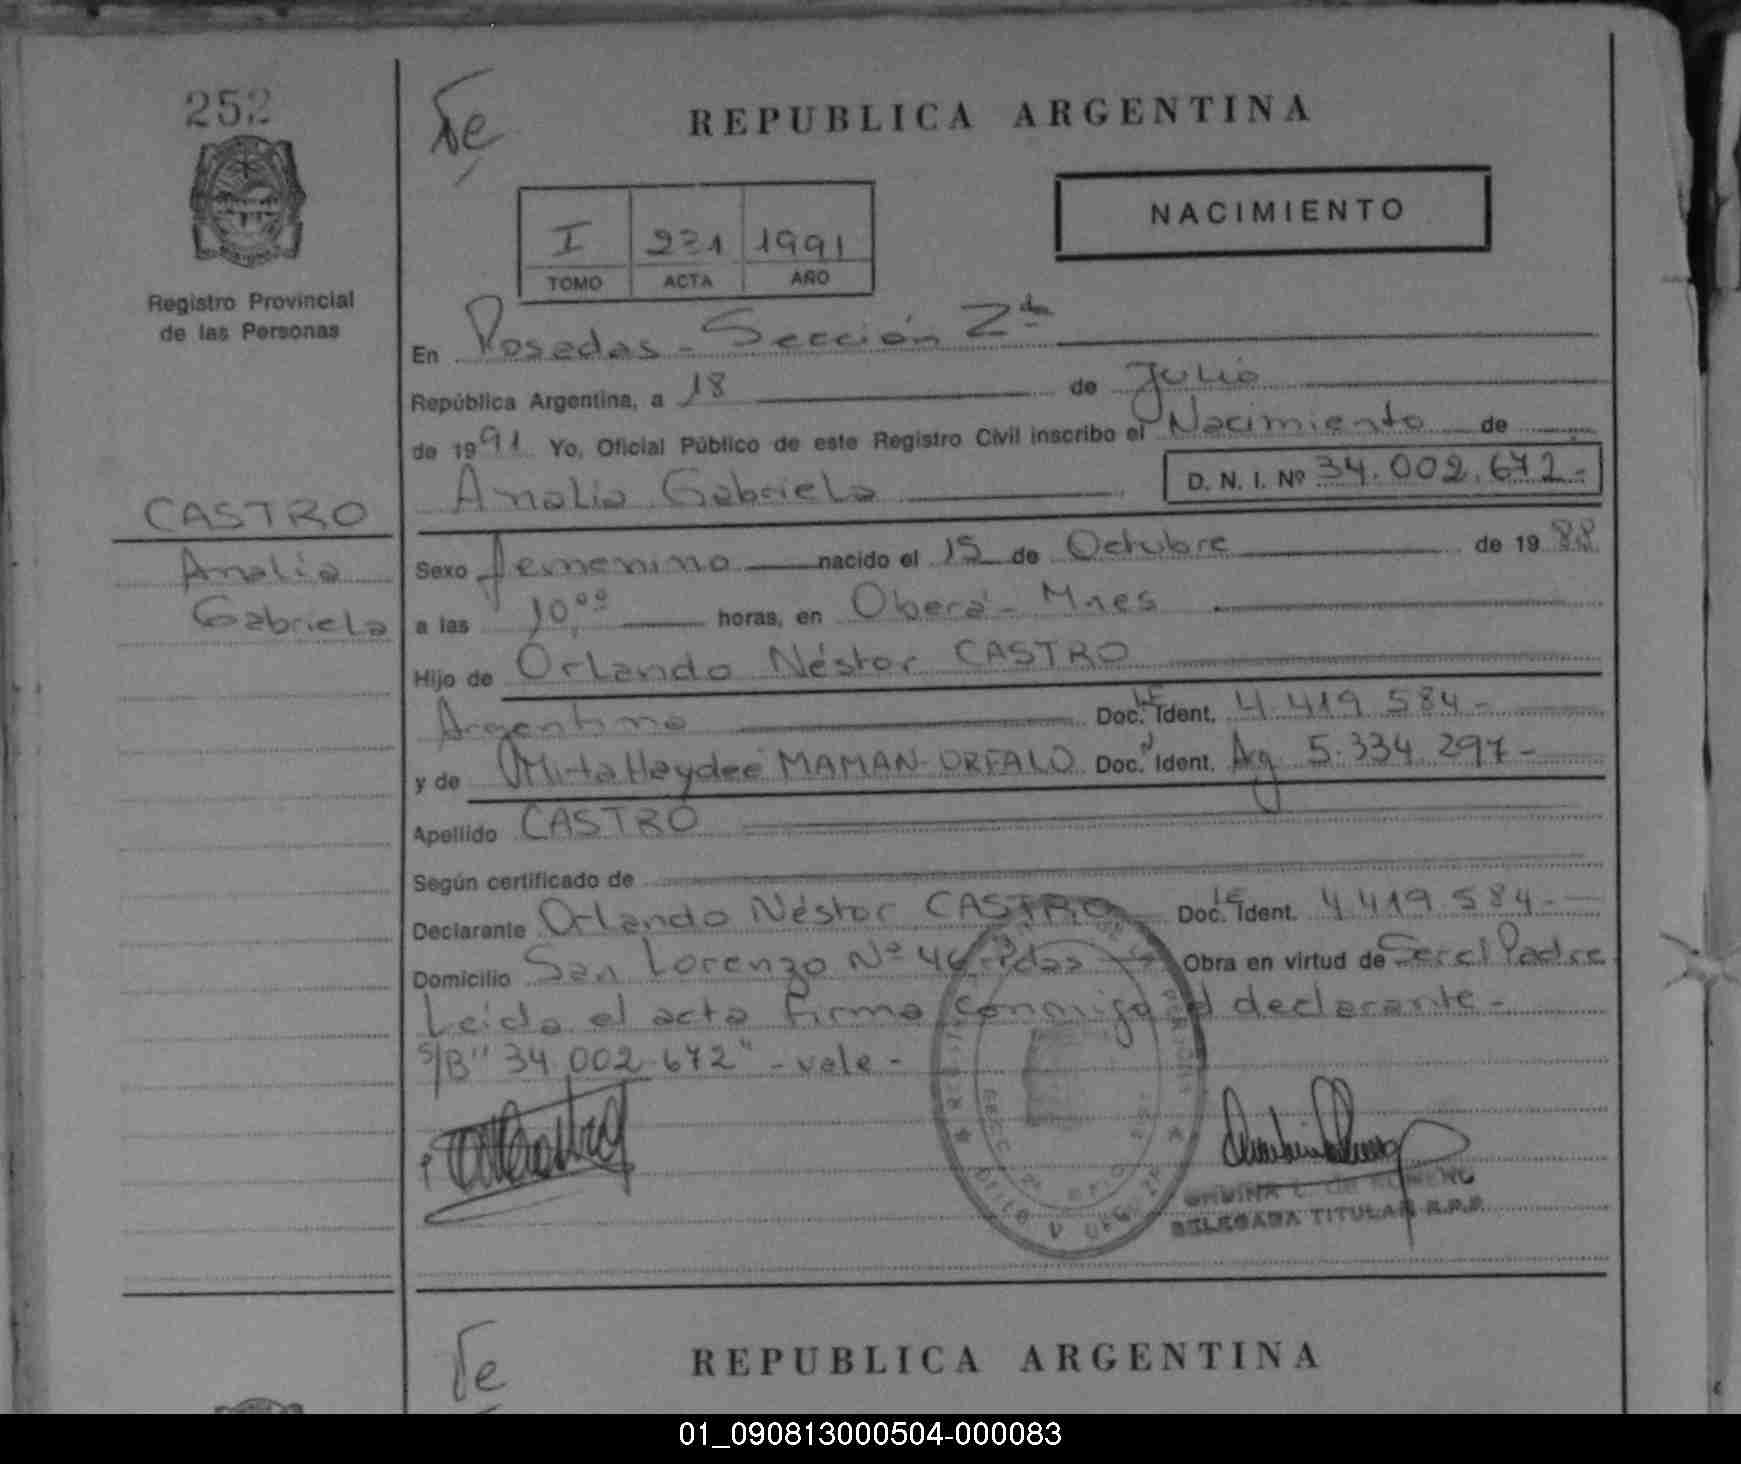 252
Registro Provincial
de las Personas
CASTRO
Analía
Gabriela
Te
REPUBLICA ARGENTINA
NACIMIENTO
I 231 1991
TOMO ACTA AÑO
En Posadas - Sección 2ª
República Argentina, a 18 de Julio
de 1991 Yo, Oficial Público de este Registro Civil inscribo el Nacimiento de
Analía Gabriela D. N. I. Nº 34.002.672.-
Sexo femenino nacido el 15 de Octubre de 1988
a las 10,00 horas, en Oberá - Mnes
Hijo de Orlando Néstor CASTRO
Argentino Doc. Ident. LE 4.419.584-
y de Mirta Haydeé MAMAN-ORFALO Doc. Ident. Arg 5.334.297-
Apellido CASTRO
Según certificado de
Declarante Orlando Néstor CASTRO Doc. Ident. LE 4.419.584-
Domicilio San Lorenzo Nº 46-Pdas Obra en virtud de Ser el Padre
Leída el acta firma conmigo el declarante-
S/B "34.002.672" - vale -
DELEGADA TITULAR R.P.P.
Te
REPUBLICA ARGENTINA
01_090813000504-000083